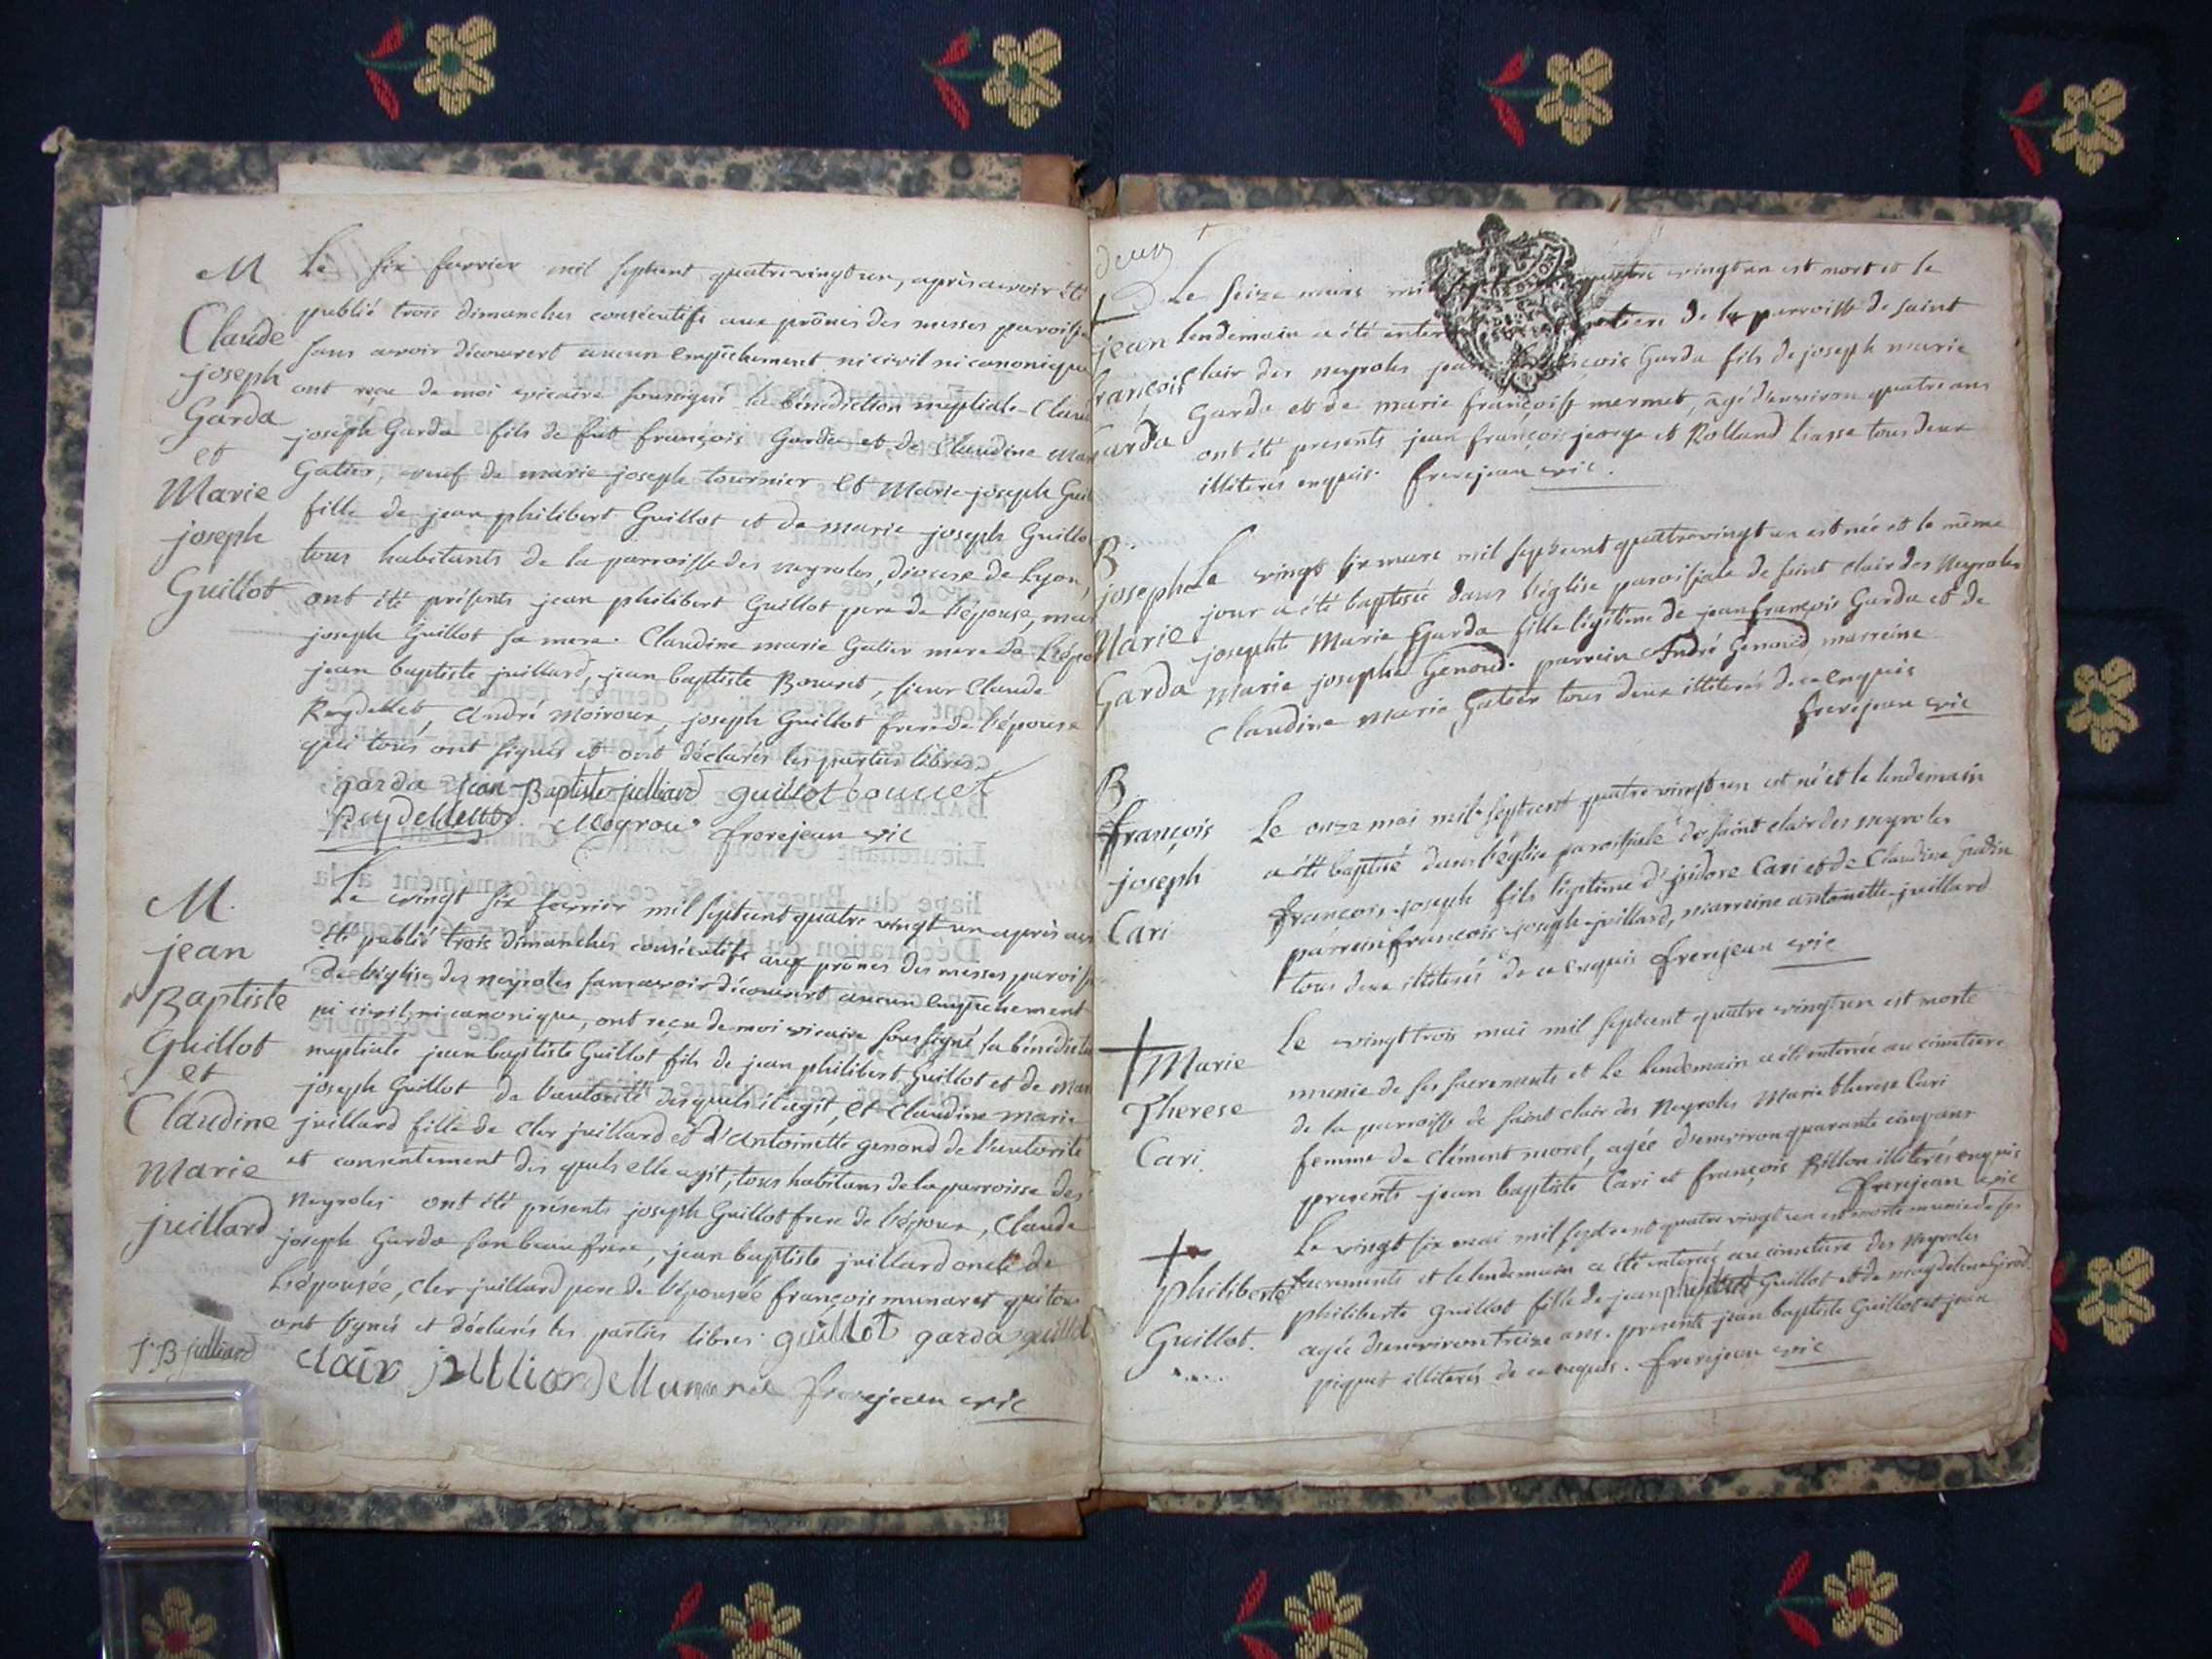 M
Claude
joseph
Garda
et
Marie
joseph
Guillot
Le six fevrier mil septcent quatrevingt un, après avoir été
publié trois dimanches consécutifs aux prônes des messes paroiss
sans avoir découvert aucun empêchement ni civil ni canonique
ont reçu de moi vicaire soussigné la bénédiction nuptiale Claude
joseph Garda fils de fut françois Garda et de Claudine Mar
Galier, veuf de marie joseph tournier et Marie joseph Guil
fille de jean philibert Guillot et de marie joseph Guillo
tous habitants de la parroisse des neyroles, diocese de Lyon,
ont été présents jean philibert Guillot pere de l'épouse, mar
joseph Guillot sa mere. Claudine marie Galier mere de l'épo
jean baptiste juillard, jean baptiste Bouvet, sieur Claude
Reydellet, André Moiroux, joseph Guillot frere de l'épouse
qui tous ont signés et ont déclarés les parties libres.
garda jean-Baptiste julliard guillot bouuet
Reydellet frerejean vic
M.
jean
Baptiste
Guillot
et
Claudine
Marie
juillard
Le vingt six fevrier mil septcent quatre vingt un après avo
été publié trois dimanches consécutifs aux prônes des messes paroiss
de l'église des neyroles sans avoir découvert aucun empêchement
ni civil, ni canonique, ont reçu de moi vicaire soussigné la bénédicti
nuptiale jean baptiste Guillot fils de jean philibert Guillot et de mar
joseph Guillot de l'autorité desquels il agit, et Claudine marie
juillard fille de cler juillard et d'Antoinette genoud de l'autorité
et consentement des quels elle agit, tous habitans de la parroisse des
neyroles ont été présents joseph Guillot frere de l'époux, Claude
joseph Garda son beau frere, jean baptiste juillard oncle de
l'épousée, cler juillard pere de l'épousée françois munaret qui tous
ont signés et déclarés les parties libres guillot garda guillot
J B julliard clair julliard Munaret frerejean vic
deux
†
jean
françois
Garda
Le seize mars mil quatre vingt un est mort et le
lendemain a été enter de la parroisse de saint
clair des neyroles jean françois Garda fils de joseph marie
Garda et de marie françoise mermet, âgé d'environ quatre ans
ont été presents jean françois jeorge et Rolland Liasse tous deux
illiterés enquis. frerejean vic.
B.
josephte
Marie
Garda
Le vingt six mars mil septcent quatrevingt un est née et le même
jour a été baptisée dans l'église paroissiale de saint clair des Neyroles
josephte Marie Garda fille légitime de jean françois Garda et de
Marie josephe Genoud. parrein André Genoud, marreine
Claudine Marie Galier tous deux illiterés de ce enquis
frerejean vic
B.
françois
joseph
Cari
Le onze mai mil septcent quatre vingt un est né et le lendemain
a été baptisé dans l'église paroissiale de saint clair des neyroles
françois joseph fils légitime d'isidore Cari et de Claudine
parrein françois joseph juillard, marreine antoinette juillard
tous deux illiterés de ce enquis frerejean vic
†
Marie
Therese
Cari
Le vingt trois mai mil septcent quatre vingt un est morte
munie de ses sacrements et le lendemain a été enterrée au cimetiere
de la parroisse de saint clair des Neyroles Marie therese Cari
femme de clément morel, agée d'environ quarante cinq ans
presents jean baptiste Cari et françois Billon illiterés enquis
frerejean vic
†
philiberte
Guillot.
Le vingt six mai mil septcent quatre vingt un est morte munie de ses
sacrements et le lendemain a été enterrée au cimetiere des Neyroles
philiberte Guillot fille de jean philibert Guillot et de magdeleine Girod
agée d'environ treize ans. presents jean baptiste Guillot et jean
piquet illiterés de ce enquis. frerejean vic